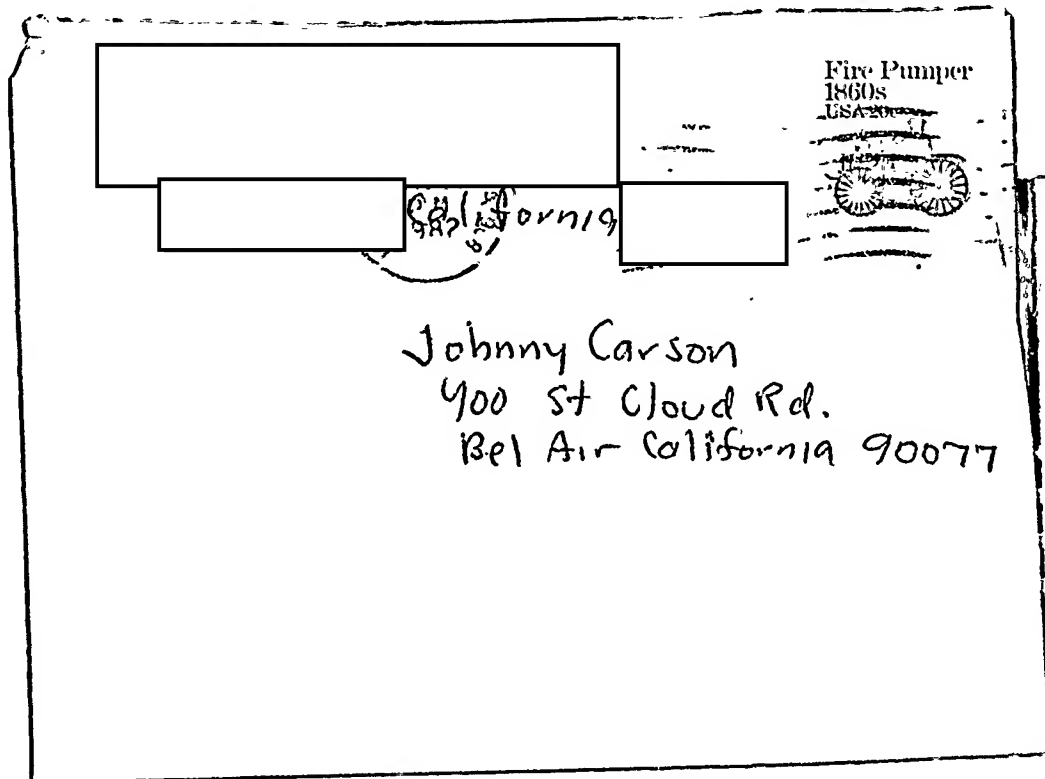 Fire Pumper
1860s
USA 20c
California
Johnny Carson
400 St Cloud Rd.
Bel Air California 90077